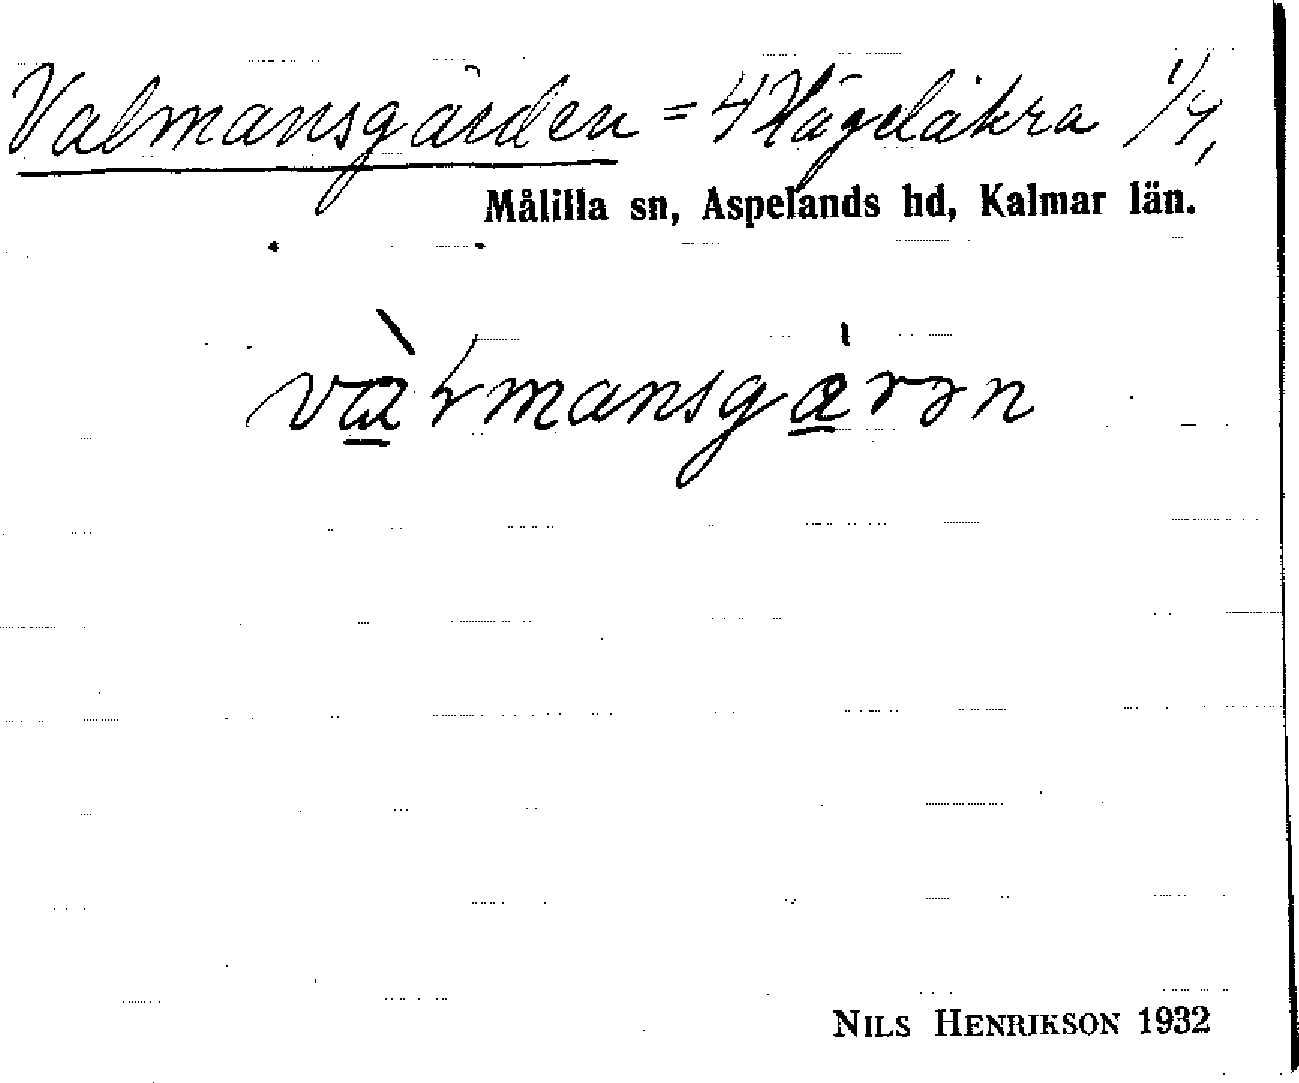 Valmansgården = 4 Hägelåkra 1/4,
Målilla sn, Aspelands hd, Kalmar län.
NILS HENRIKSON 1932